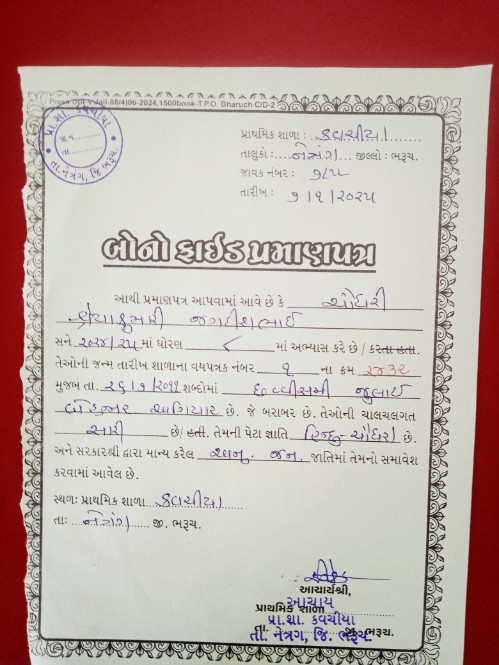 Press Dpt.V.Jail-88/4)06-2024,1500book-T.P.O. Bharuch C/D-2
પ્રા.શા. કવચીયા
જા.નં.
તા.
તા.નેત્રંગ, જિ.ભરૂચ.
પ્રાથમિક શાળા : કવચીયા
તાલુકો : નેત્રંગ જીલ્લો : ભરૂચ.
જાવક નંબર : ૧/૫
તારીખ : ૧/૧/૨૦૨૫
બોનો ફાઈડ પ્રમાણપત્ર
આથી પ્રમાણપત્ર આપવામાં આવે છે કે ચૌધરી
શ્રેયાકુમારી જગદીશભાઈ
સને ૨૦૨૪/૨૫ માં ધોરણ ૮ માં અભ્યાસ કરે છે / કરતા હતા.
તેઓની જન્મ તારીખ શાળાના વયપત્રક નંબર ૧ ના ક્રમ ૨૭૩૨
મુજબ તા. ૨૬/૭/૨૦૧૧ શબ્દોમાં છવ્વીસમી જુલાઈ
બે હજાર અગિયાર છે. જે બરાબર છે. તેઓની ચાલચલગત
સારી છે/ હતી. તેમની પેટા જ્ઞાતિ હિન્દુ ચૌધરી છે.
અને સરકારશ્રી દ્વારા માન્ય કરેલ અનુ. જન. જાતિમાં તેમનો સમાવેશ
કરવામાં આવેલ છે.
સ્થળ: પ્રાથમિક શાળા કવચીયા
તાઃ નેત્રંગ જી. ભરૂચ.
આચાર્યશ્રી,
આચાર્ય
પ્રાથમિક શાળા
પ્રા.શા. કવચીયા
તા. જી. ભરૂચ.
તા. નેત્રંગ, જિ. ભરૂચ.